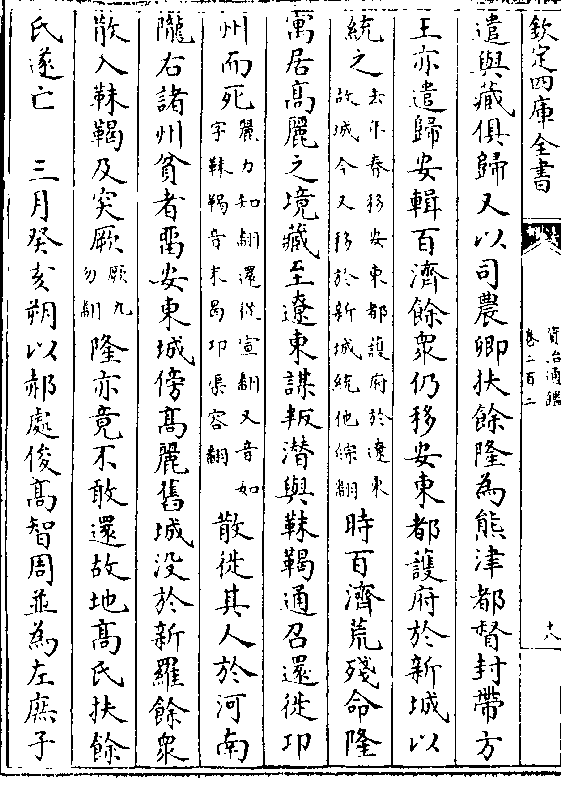 欽定四庫全書
資治通鑑
卷二百二
十八
遣與藏俱歸又以司農卿扶餘隆為熊津都督封帶方
王亦遣歸安輯百濟餘衆仍移安東都護府於新城以
統之去年春移安東都護府於遼東故城今又移於新城統他綜翻時百濟荒殘命隆
寓居高麗之境藏至遼東謀叛潛與靺鞨通召還徙卭
州而死麗力知翻還從宣翻又音如字靺鞨音末曷卭渠容翻散徙其人於河南
隴右諸州貧者畱安東城傍高麗舊城没於新羅餘衆
散入靺鞨及突厥厥九勿翻隆亦竟不敢還故地高氏扶餘
氏遂亡　三月癸亥朔以郝處俊高智周並為左庶子